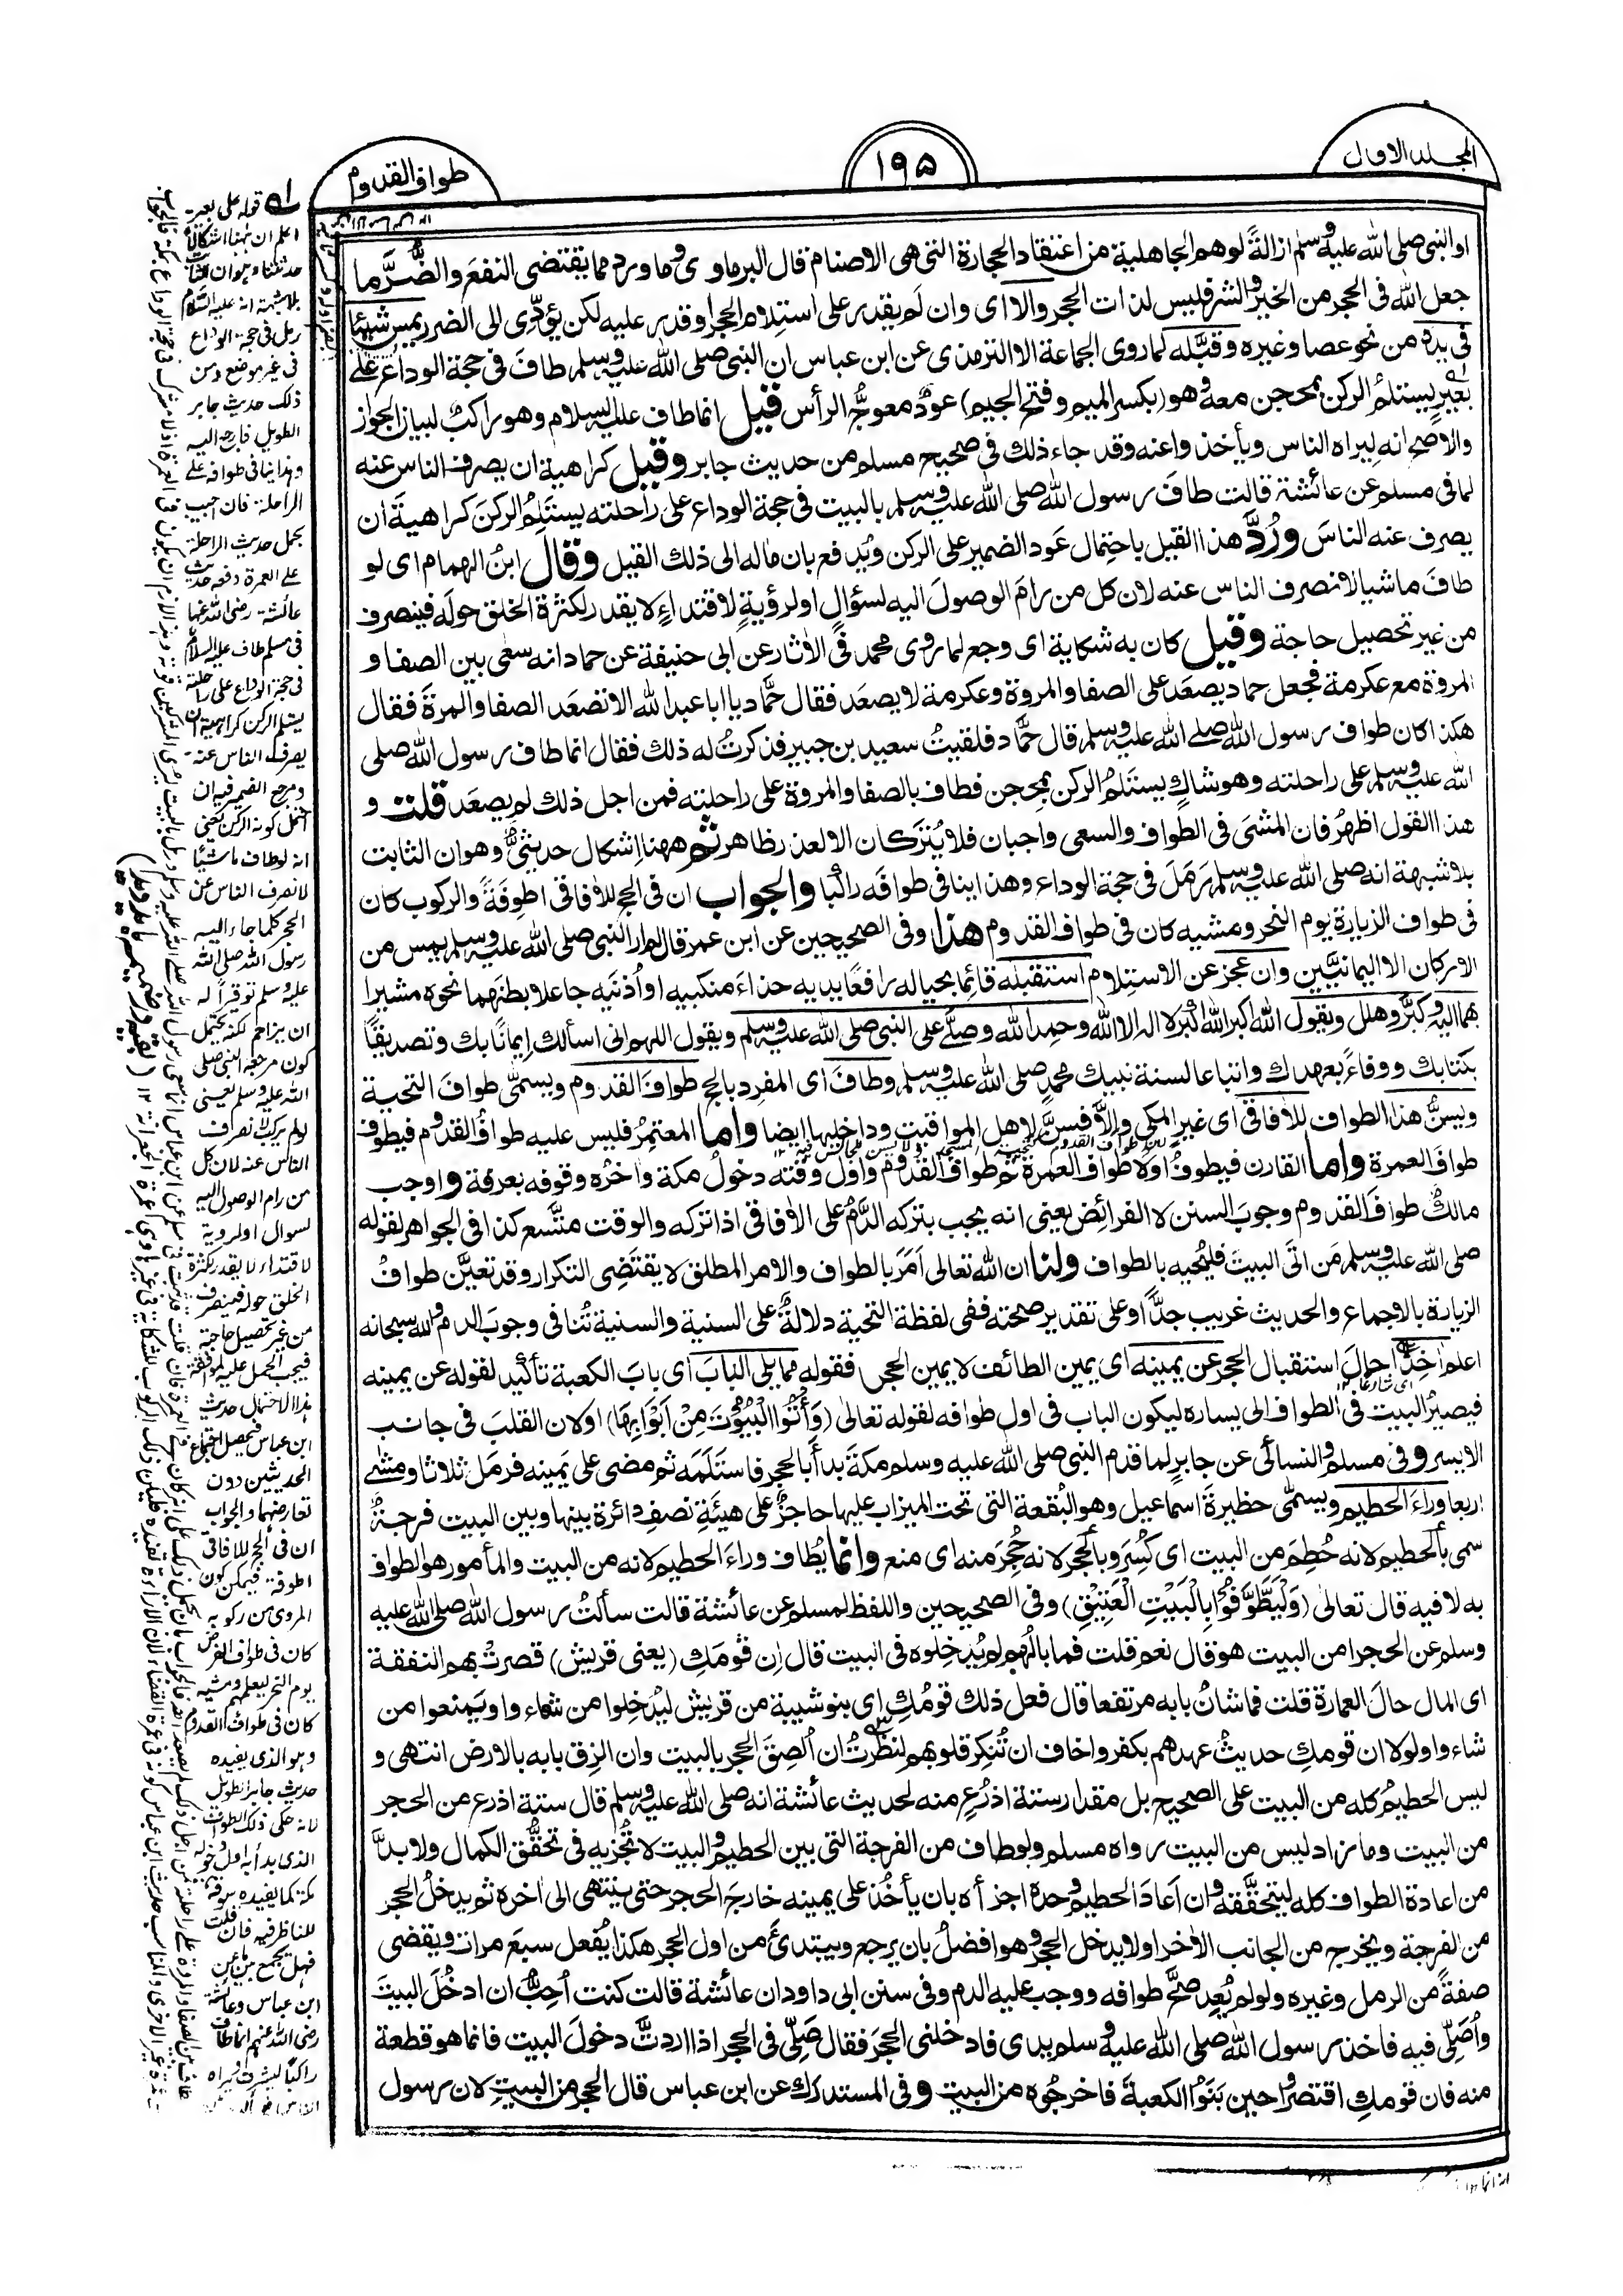 المجلد الاول
١٩٥
طواف القدوم
او النبي صلى الله عليه وسلم ازالةً لوهم الجاهلية من اعتقاد الحجارة التي هي الاصنام قال البرماوي وما ورد مما يقتضي النفع والضُّرَّ مما
جعل الله في الحجر من الخير والشر فليس لذات الحجر والا اي وان لم يقدر على استلام الحجر او قدر عليه لكن يؤدِّي الى الضرر يمس شيئا
في يده من نحو عصا وغيره وقبَّله لما روى الجماعة الا الترمذي عن ابن عباس ان النبي صلى الله عليه وسلم طاف في حجة الوداع على
بعير يستلمُ الركن بمحجن معه وهو (بكسر الميم وفتح الجيم) عودٌ معوجُّ الرأس قيل انما طاف عليه السلام وهو راكبٌ لبيان الجواز
والاصح انه ليراه الناس ويأخذوا عنه وقد جاء ذلك في صحيح مسلم من حديث جابر وقيل كراهية ان يصرف الناس عنه
لما في مسلم عن عائشة قالت طاف رسول الله صلى الله عليه وسلم بالبيت في حجة الوداع على راحلته يستلِمُ الركنَ كراهيةَ ان
يصرف عنه الناسَ ورُدَّ هذا القيل باحتمال عَود الضمير على الركن ويُدفع بان ماله الى ذلك القيل وقال ابنُ الهمام اي لو
طافَ ماشيا لانصرف الناس عنه لان كل من رامَ الوصولَ اليه لسؤالٍ او لرؤيةٍ لاقتداءٍ لا يقدر لكثرة الخلق حولَه فينصرف
من غير تحصيل حاجة وقيل كان به شكاية اي وجع لما روى محمد في الآثار عن ابي حنيفة عن حماد انه سعى بين الصفا و
المروة مع عكرمة فجعل حماد يصعَد على الصفا والمروة وعكرمة لا يصعَد فقال حمَّاد يا ابا عبد الله الا تصعَد الصفا والمروة فقال
هكذا كان طواف رسول الله صلى الله عليه وسلم قال حمَّاد فلقيتُ سعيد بن جبير فذكرتُ له ذلك فقال انما طاف رسول الله صلى
الله عليه وسلم على راحلته وهو شاكٍ يستلمُ الركن بمحجن فطاف بالصفا والمروة على راحلته فمن اجل ذلك لم يصعَد قلت و
هذا القول اظهرُ فان المشيَ في الطواف والسعي واجبان فلا يُتركان الا لعذر ظاهر ثم ههنا اشكال حديثيٌّ وهو ان الثابت
بلا شبهة انه صلى الله عليه وسلم رَمَلَ في حجة الوداع وهذا ينافي طوافَه راكبا والجواب ان في الحج للآفاقي اطوِفَةً والركوب كان
في طواف الزيارة يوم النحر ومشيه كان في طواف القدوم هذا وفي الصحيحين عن ابن عمر قال لم ار النبي صلى الله عليه وسلم يمس من
الاركان الا اليمانيَّين وان عجز عن الاستلام استقبله قائما بحياله رافعًا يديه حذاءَ منكبيه او أذنَيه جاعلا بطنَهما نحوه مشيرا
بهما اليه وكبَّر وهلل ويقول الله اكبر الله اكبر لا اله الا الله وحمِد الله وصلَّى على النبي صلى الله عليه وسلم ويقول اللهم اني اسألك إيمانًا بك وتصديقًا
بكتابك ووفاءً بعهدك واتباعا لسنة نبيك محمدٍ صلى الله عليه وسلم وطافَ اي المفرِد بالحج طوافَ القدوم ويسمَّى طوافَ التحية
ويسنُّ هذا الطواف للآفاقي اي غيرِ المكي والا فيسنُّ لاهل المواقيت وداخليها ايضا واما المعتمِرُ فليس عليه طوافُ القدوم فيطوف
طوافَ العمرة واما القارن فيطوفُ اولا طوافَ العمرة ثم طوافَ القدوم واول وقته دخولُ مكة واخرُه وقوفه بعرفة و اوجب
مالكٌ طوافَ القدوم وجوبَ السنن لا الفرائض يعني انه يجب بتركه الدَّمُ على الآفاقي اذا تركه والوقت متَّسع كذا في الجواهر لقوله
صلى الله عليه وسلم مَن اتى البيتَ فليُحيه بالطواف ولنا ان الله تعالى اَمَرَ بالطواف والامر المطلق لا يقتضِي التكرار وقد تعيَّن طوافُ
الزيارة بالاجماع والحديث غريب جدًّا وعلى تقدير صحته ففي لفظة التحية دلالةٌ على السنية والسنية تُنافي وجوبَ الدم والله سبحانه
اعلم اٰخِذًا حالَ استقبال الحجر عن يمينه اي يمين الطائف لا يمين الحجر فقوله مما يلي البابَ اي بابَ الكعبة تأكيد لقوله عن يمينه
فيصيرُ البيت في الطواف الى يساره ليكون الباب في اول طوافه لقوله تعالى (وَأْتُوا الْبُيُوْتَ مِنْ اَبْوَابِهَا) اولان القلبَ في جانب
الايسر و في مسلم والنسائي عن جابرٍ لما قدم النبي صلى الله عليه وسلم مكةَ بدأ بالحجر فاستَلَمَه ثم مضى على يمينه فرمَل ثلاثا ومشى
اربعا وراءَ الحطيم ويسمى حظيرةَ اسماعيل وهو البُقعة التي تحت الميزاب عليها حاجزٌ على هيئةِ نصفِ دائرة بينها وبين البيت فرجةٌ
سمي بالحطيم لانه حُطِمَ من البيت اي كُسِرَ وبالحِجر لانه حُجِرَ منه اي منع وانما يُطاف وراءَ الحطيم لانه من البيت والمأمور هو الطواف
به لا فيه قال تعالى (وَلْيَطَّوَّفُوْا بِالْبَيْتِ الْعَتِيْقِ) وفي الصحيحين واللفظ لمسلم عن عائشة قالت سألتُ رسول الله صلى الله عليه
وسلم عن الحجر امن البيت هو قال نعم قلت فما بالُهم لم يُدخِلوه في البيت قال اِن قومَكِ (يعني قريش) قصرتْ بهم النفقة
اي المال حالَ العمارة قلت فما شانُ بابه مرتفعا قال فعل ذلك قومُكِ اي بنو شيبة من قريش ليُدخِلوا من شاءوا ويَمنعوا من
شاءوا ولولا ان قومكِ حديثٌ عهدهم بكفر واخاف ان تُنكِر قلوبهم لنظرتُ ان اُلصِقَ الحِجر بالبيت وان الزِق بابه بالارض انتهى و
ليس الحطيمُ كله من البيت على الصحيح بل مقدار ستة اذرُعٍ منه لحديث عائشة انه صلى الله عليه وسلم قال ستة اذرع من الحجر
من البيت وما زاد ليس من البيت رواه مسلم ولو طاف من الفرجة التي بين الحطيم والبيت لا تُجزيه في تحقُّق الكمال ولا بدَّ
من اعادة الطواف كله ليتحقَّقه وان اَعادَ الحطيم وحده اجزأه بان يأخُذ على يمينه خارجَ الحجر حتى ينتهي الى اٰخره ثم يدخلُ الحجر
من الفرجة ويخرج من الجانب الآخر او لا يدخل الحجر وهو افضلُ بان يرجع ويبتدئَ من اول الحجر هكذا يُفعل سبعَ مرات ويقضي
صفةً من الرمل وغيره ولو لم يُعِد صحَّ طوافه ووجب عليه الدم وفي سنن ابي داود ان عائشة قالت كنت اُحِبُّ ان ادخُلَ البيتَ
واُصَلِّي فيه فاخذ رسول الله صلى الله عليه وسلم بيدي فادخلني الحجرَ فقال صَلِّي في الحجر اذا اردتِّ دخولَ البيت فانما هو قطعة
منه فان قومكِ اقتصروا حين بَنَوُا الكعبةَ فاخرجُوه من البيت وفي المستدرك عن ابن عباس قال الحجر من البيتِ لان رسول
قوله على بعير
اعلم ان ههنا اشكالا
حديثيا وهو ان الثابت
بلا شبهة انه عليه السلام
رمل في حجة الوداع
في غير موضع ومن
ذلك حديث جابر
الطويل فارجع اليه
وهذا ينافي طوافه على
الراحلة فان اجيب
بحمل حديث الراحلة
على العمرة دفعه حديث
عائشة رضي الله عنها
في مسلم طاف عليه السلام
في حجة الوداع على راحلته
يستلم الركن كراهية ان
يصرف الناس عنه
ومرجع الضمير فيه ان
احتمل كونه الركن يعني
انه لو طاف ماشيا
لانصرف الناس عن
الحجر كلما جاء اليه
رسول الله صلى الله
عليه وسلم توقيرا له
ان يزاحم لكنه يحتمل
كون مرجعه النبي صلى
الله عليه وسلم يعني
لو لم يركب لانصرف
الناس عنه لان كل
من رام الوصول اليه
لسوال او لروية
لاقتداء لا يقدر لكثرة
الخلق حوله فينصرف
من غير تحصيل حاجة
فيجب الحمل عليه لموافقة
هذا الاحتمال حديث
ابن عباس فيحصل اجتماع
الحديثين دون
تعارضهما والجواب
ان في الحج للآفاقي
اطوفة فيمكن كون
المروي من ركوبه
كان في طواف الفرض
يوم النحر ليعلمهم ومشيه
كان في طواف القدوم
وهو الذي يفيده
حديث جابر الطويل
لانه حكى ذلك الطواف
الذي بدأ به اول دخوله
مكة كما يفيده سوقه
للناظر فيه فان قلت
فهل يجمع بين ما عن
ابن عباس وعائشة
رضي الله عنهم انما طاف
راكبا ليشرف ويراه